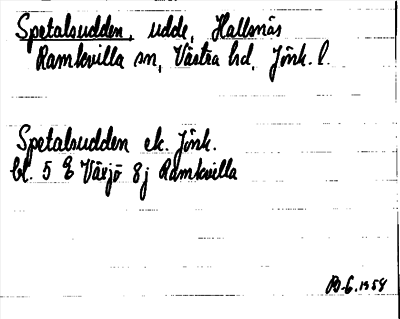 Spetalsudden, udde, Hallsnäs
Ramkvilla sn, Västra hd, Jönk. l.
Spetalsudden ek. Jönk.
bl. 5 E Växjö 8j Ramkvilla